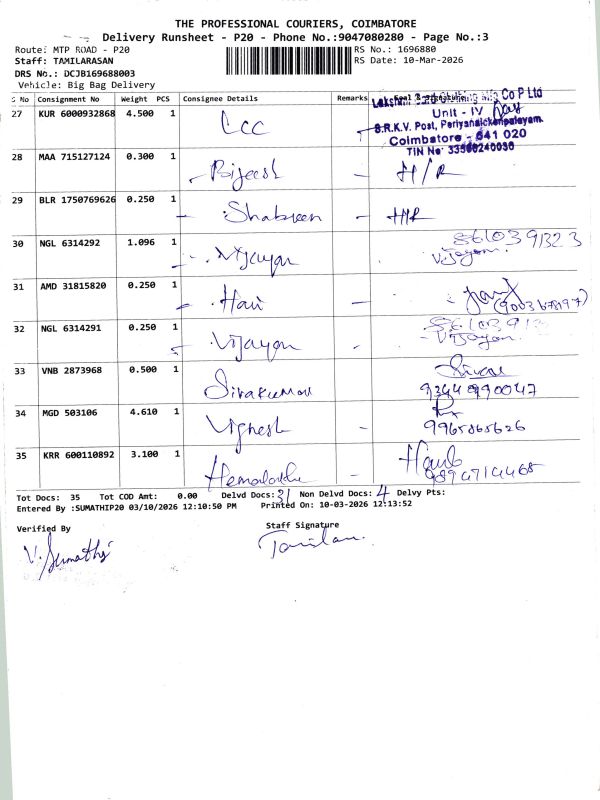 THE PROFESSIONAL COURIERS, COIMBATORE
Delivery Runsheet - P20 - Phone No.:9047080280 - Page No.:3
Route: MTP ROAD - P20 RS No.: 1696880
Staff: TAMILARASAN RS Date: 10-Mar-2026
DRS No.: DCJB169688003
Vehicle: Big Bag Delivery
S No Consignment No Weight PCS Consignee Details Remarks Seal & Signature
Co P Ltd
Unit - IV
S.R.K.V. Post, Periyanaickenpalayam,
Coimbatore - 641 020
27 KUR 6000932868 4.500 1 CCC
28 MAA 715127124 0.300 1 Bijeesh - H/R
29 BLR 1750769626 0.250 1 - Shabreen - H/R
30 NGL 6314292 1.096 1 Vijayan 8610391323
Vijayan
31 AMD 31815820 0.250 1 - Hari -
32 NGL 6314291 0.250 1 Vijayan - Vijayan
33 VNB 2873968 0.500 1 Sivakumar
34 MGD 503106 4.610 1 Vignesh -
9965865626
35 KRR 600110892 3.100 1 Hemalatha -
9894714468
Tot Docs: 35 Tot COD Amt: 0.00 Delvd Docs: 31 Non Delvd Docs: 4 Delvy Pts:
Entered By :SUMATHIP20 03/10/2026 12:10:50 PM Printed On: 10-03-2026 12:13:52
Verified By Staff Signature
V. Sumathi